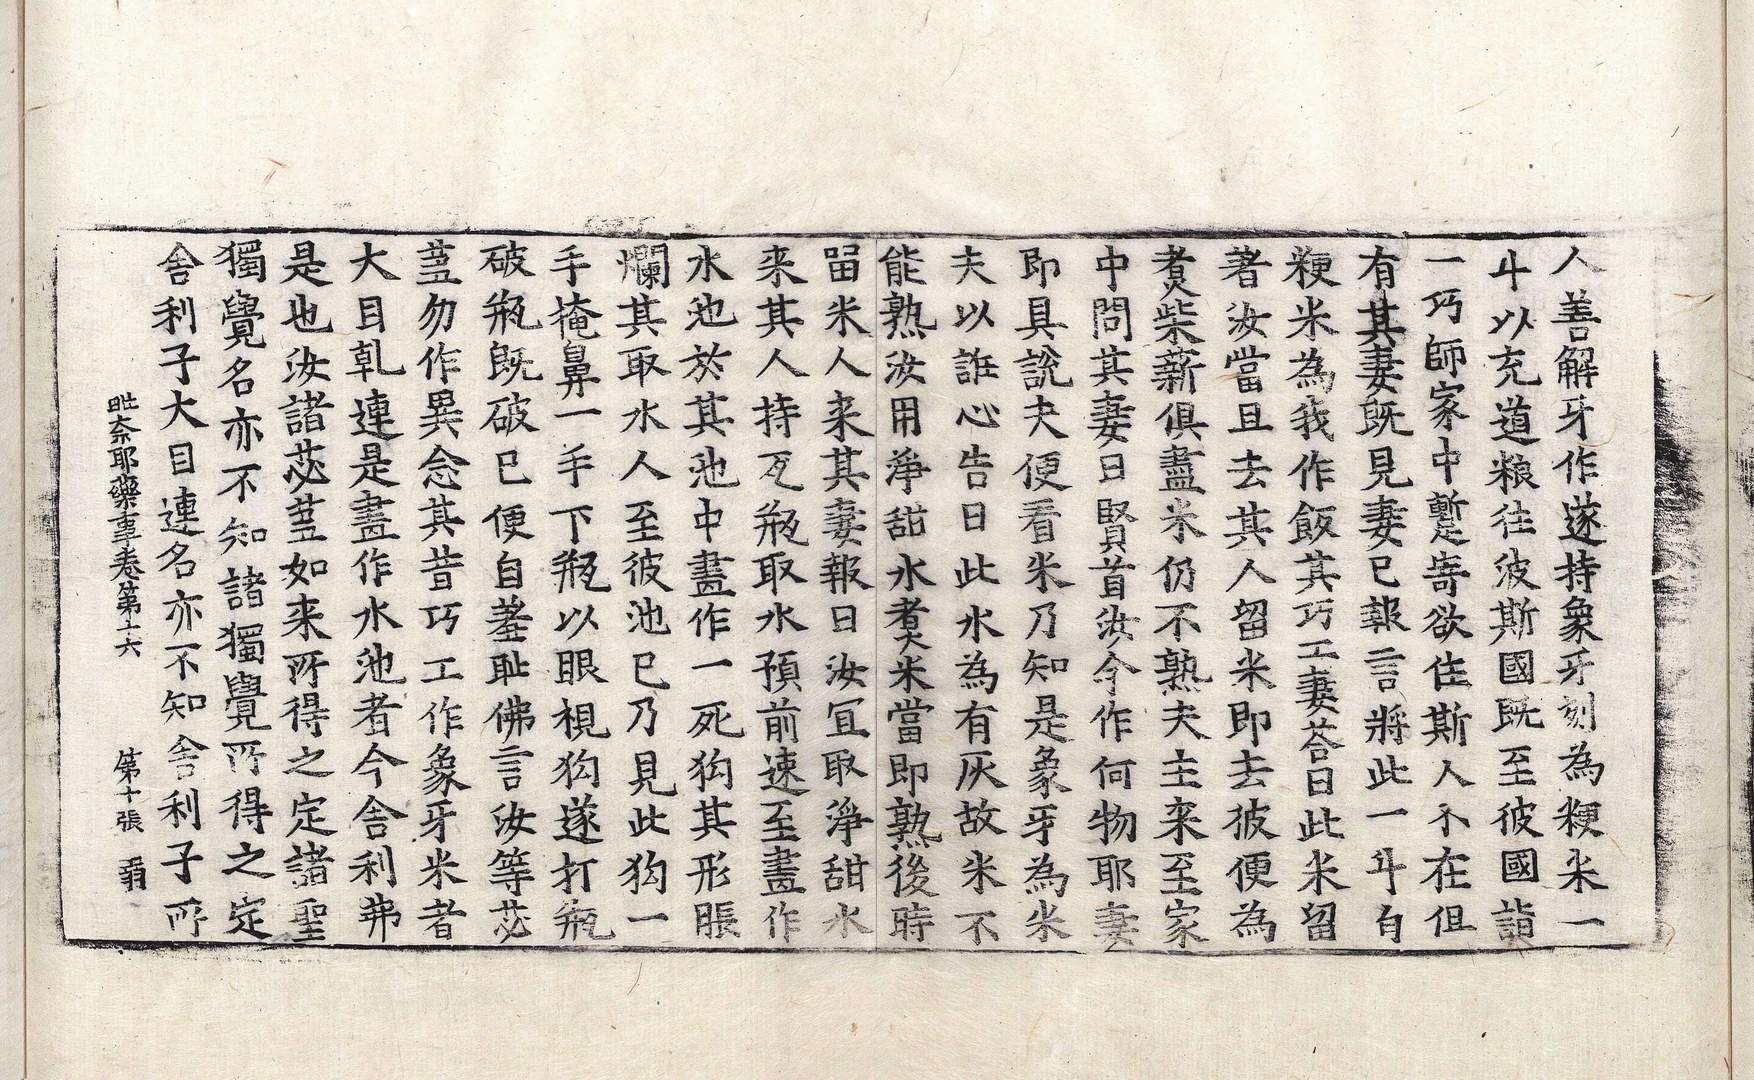 人善解牙作遂持象牙刻為粳米一
斗以充道粮往波斯國旣至彼國詣
一巧師家中蹔寄欲住斯人不在但
有其妻旣見妻已報言將此一斗白
粳米為我作飯其巧工妻荅曰此米留
著汝當且去其人留米即去彼便為
煮柴薪俱盡米仍不熟夫主来至家
中問其妻曰賢首汝今作何物耶妻
即具說夫便看米乃知是象牙為米
夫以誑心告曰此水為有灰故米不
能熟汝用淨甜水煮米當即熟後時
留米人来其妻報曰汝冝取淨甜水
来其人持瓦瓶取水預前速至畫作
水池於其池中畫作一死狗其形脹
爛其取水人至彼池已乃見此狗一
手掩鼻一手下瓶以眼視狗遂打瓶
破瓶旣破已便自羞耻佛言汝等苾
蒭勿作異念其昔巧工作象牙米者
大目乹連是畫作水池者今舍利弗
是也汝諸苾蒭如来所得之定諸聖
獨覺名亦不知諸獨覺所得之定
舍利子大目連名亦不知舍利子所
毗奈耶藥事卷第十六 第十張